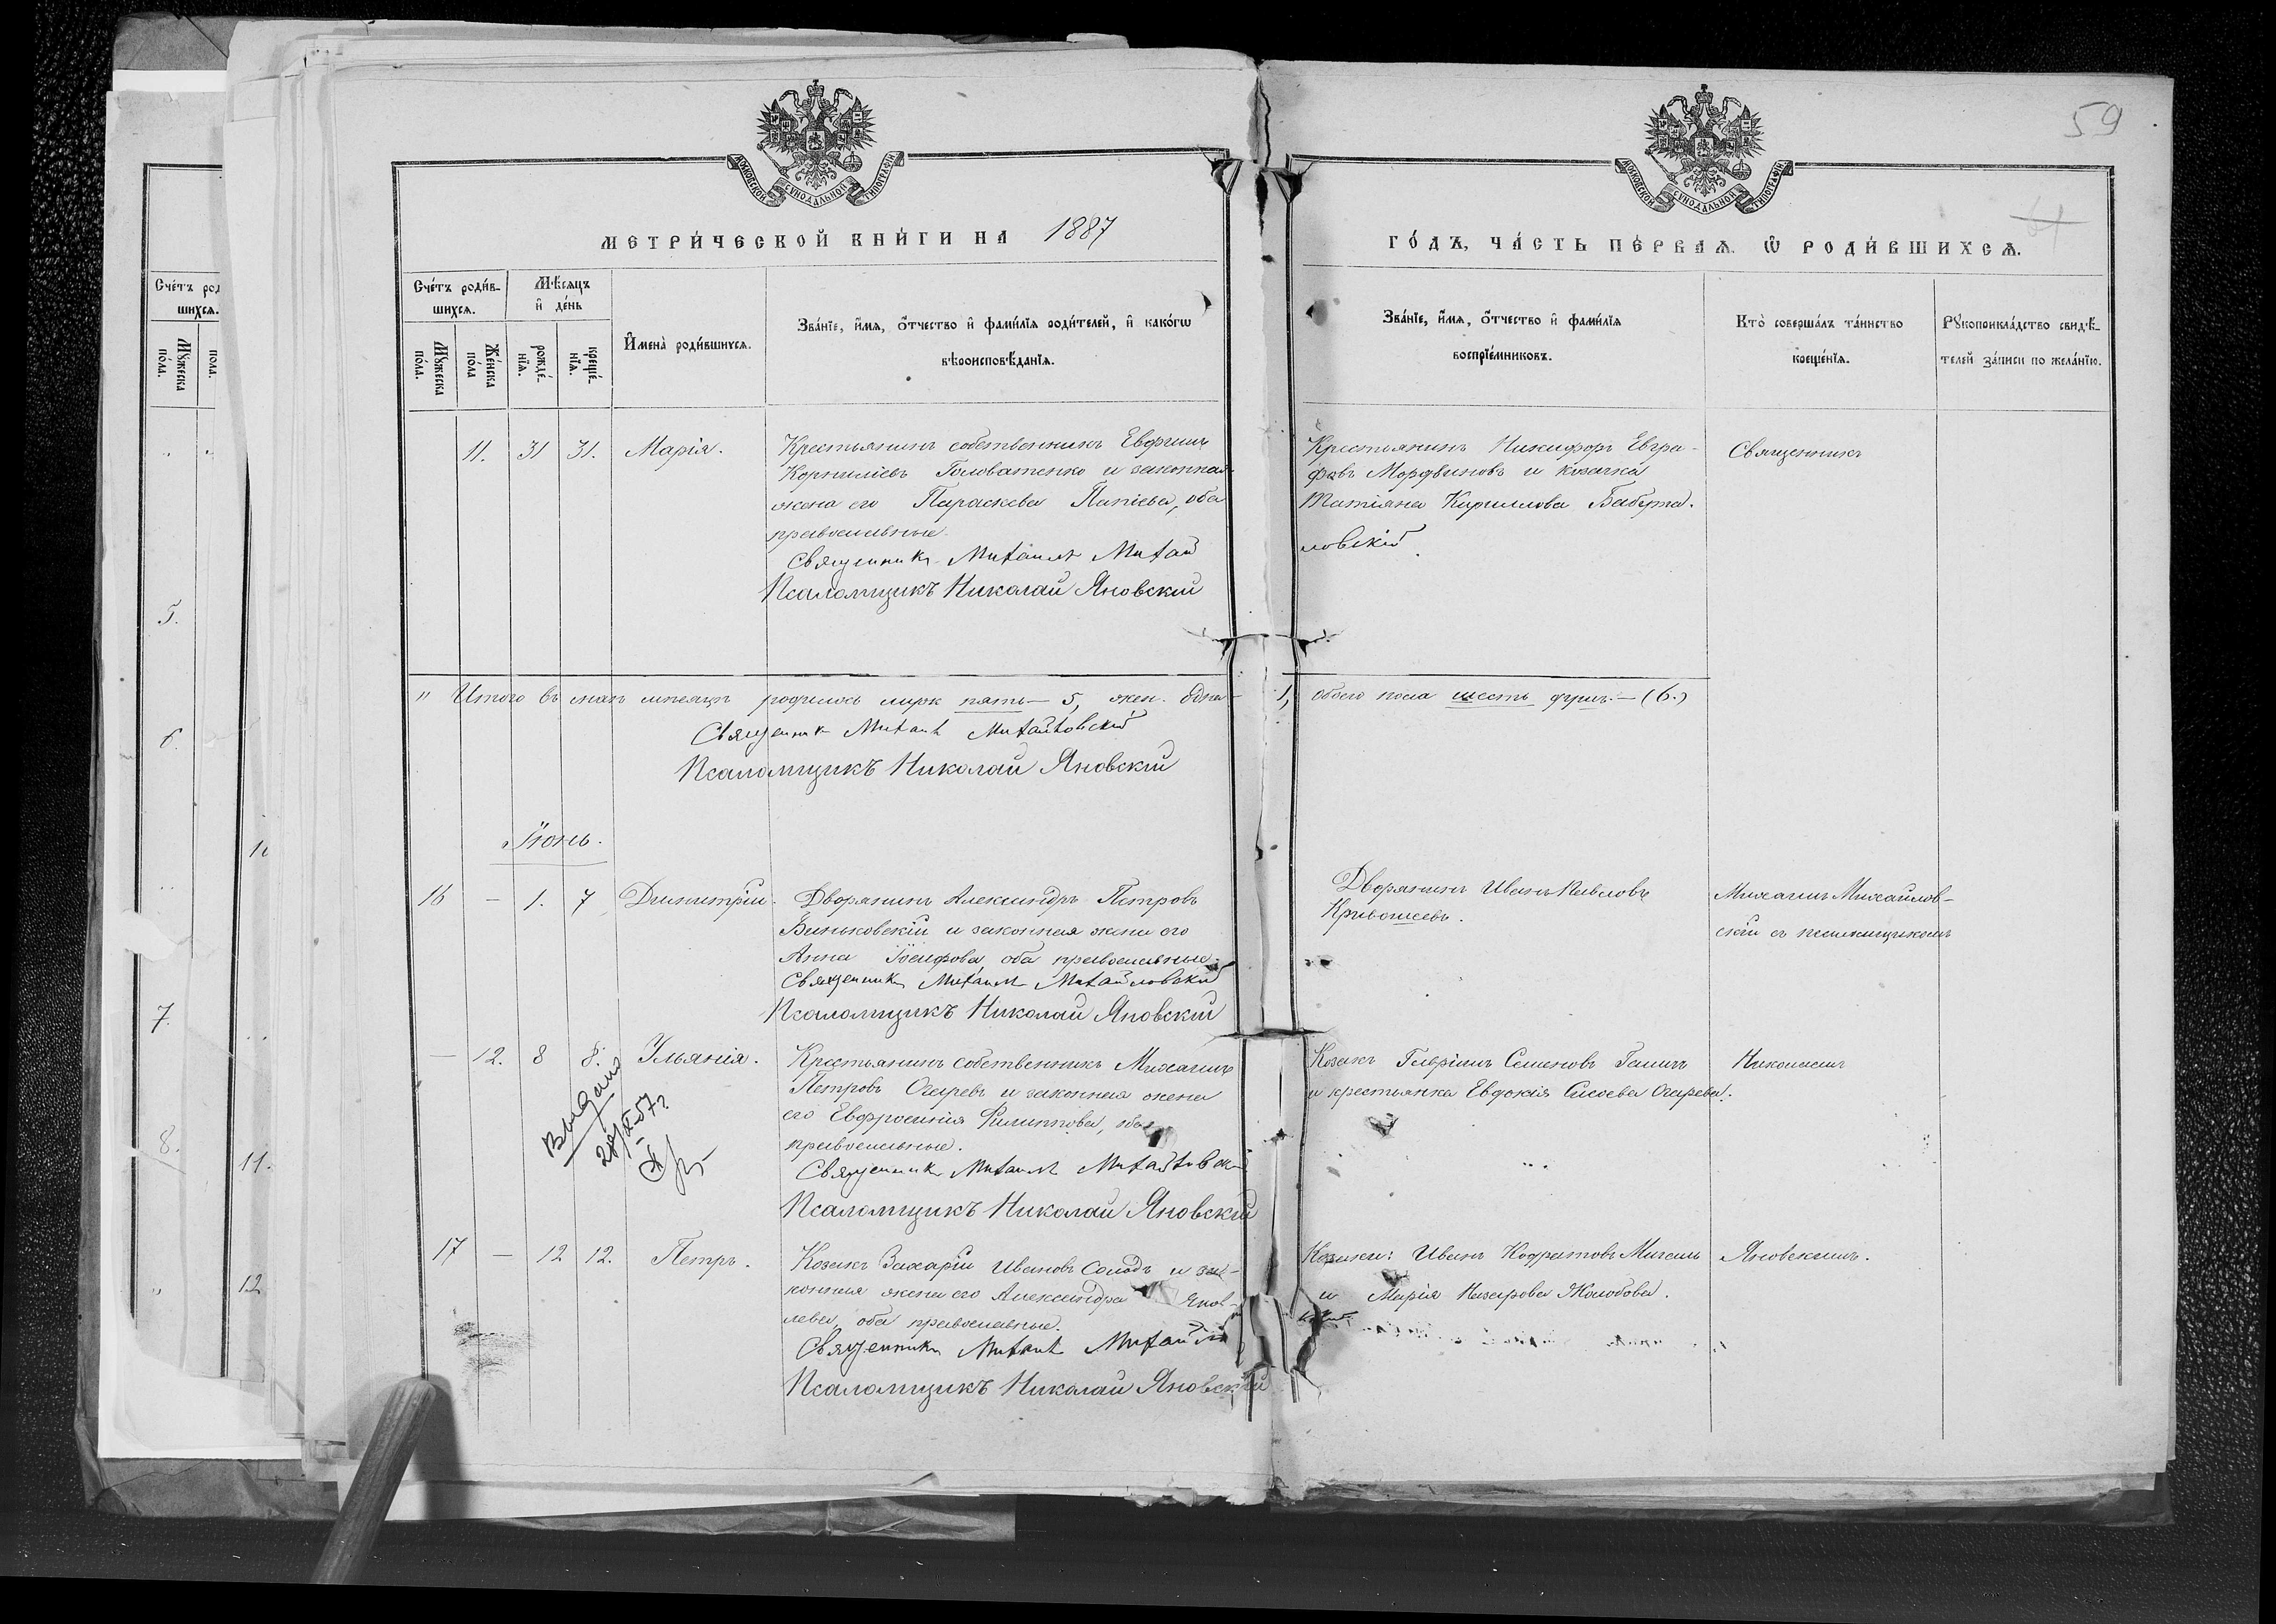 59
МОСКОВСКОЙ СѴНОДАЛЬНОЙ ТИПОГРАФІИ
МОСКОВСКОЙ СѴНОДАЛЬНОЙ ТИПОГРАФІИ
МЕТРИ́ЧЕСКОЙ КНИ́ГИ НА 1887
ГО́ДЪ, ЧА́СТЬ ПЕ́РВАѦ. Ѡ҆ РОДИ́ВШИХСѦ.
Сче́тъ роди́в-
шихсѧ.
Мꙋ́жеска
по́ла.
Же́нска
по́ла
Мѣ́сяцъ
и҆ де́нь
рожде́-
нїѧ.
креще́-
нїѧ.
И҆мена̀ роди́вшихсѧ.
Зва́нїе, и҆́мѧ, о҆́тчество и҆ фами́лїѧ роди́телей, и҆ како́гѡ
вѣроисповѣ́данїѧ.
Зва́нїе, и҆́мѧ, о҆́тчество и҆ фами́лїѧ
воспрїе́мниковъ.
Кто̀ соверша́лъ та́инство
креще́нїѧ.
Рꙋкоприкла́дство свидѣ́-
телей за́писи по жела́нїю.
11. 31 31. Марія.
Крестьянинъ собственникъ
Корниліевъ Головатенко и законная
жена его Параскева, оба
православные.
Священникъ Михаилъ Михай
Псаломщикъ Николай Яновскій
Крестьянинъ Никифоръ Евгра-
фовъ Мордвиновъ и козачка
Татіана Кириллова
Священникъ
" Итого въ маѣ мѣсяцѣ родилось муж пять — 5, жен. одна — 1, обоего пола шесть душъ. — (6.)
Священникъ Михаилъ Михайловскій
Псаломщикъ Николай Яновскій
Іюнь.
16 — 1. 7 Димитрій.
Дворянинъ Александръ Петровъ
Виньковскій и законная жена его
Анна Іосифова, оба православные.
Священникъ Михаилъ Михайловскій
Псаломщикъ Николай Яновскій
Дворянинъ Иванъ Павловъ
Кривошеевъ.
Михаилъ Михайлов-
скій съ псаломщикомъ
— 12. 8 8. Ульянія.
Выдано
Крестьянинъ собственникъ Михаилъ
Петровъ Очаревъ и законная жена
его Евфросинія Филиппова, оба
православные.
Священникъ Михаилъ Михайловскій
Псаломщикъ Николай Яновскій
Козакъ Гавріилъ Семеновъ
и крестьянка Евдокія Сысоева Очарева.
Николаемъ
17 — 12 12. Петръ.
Козакъ Захарій Ивановъ Солодъ и за-
конная жена его Александра Яков-
лева, оба православные.
Священникъ Михаилъ Михайло
Псаломщикъ Николай Яновскій
Козаки: Иванъ
и Марія Назарова Жолобова.
Яновскимъ.